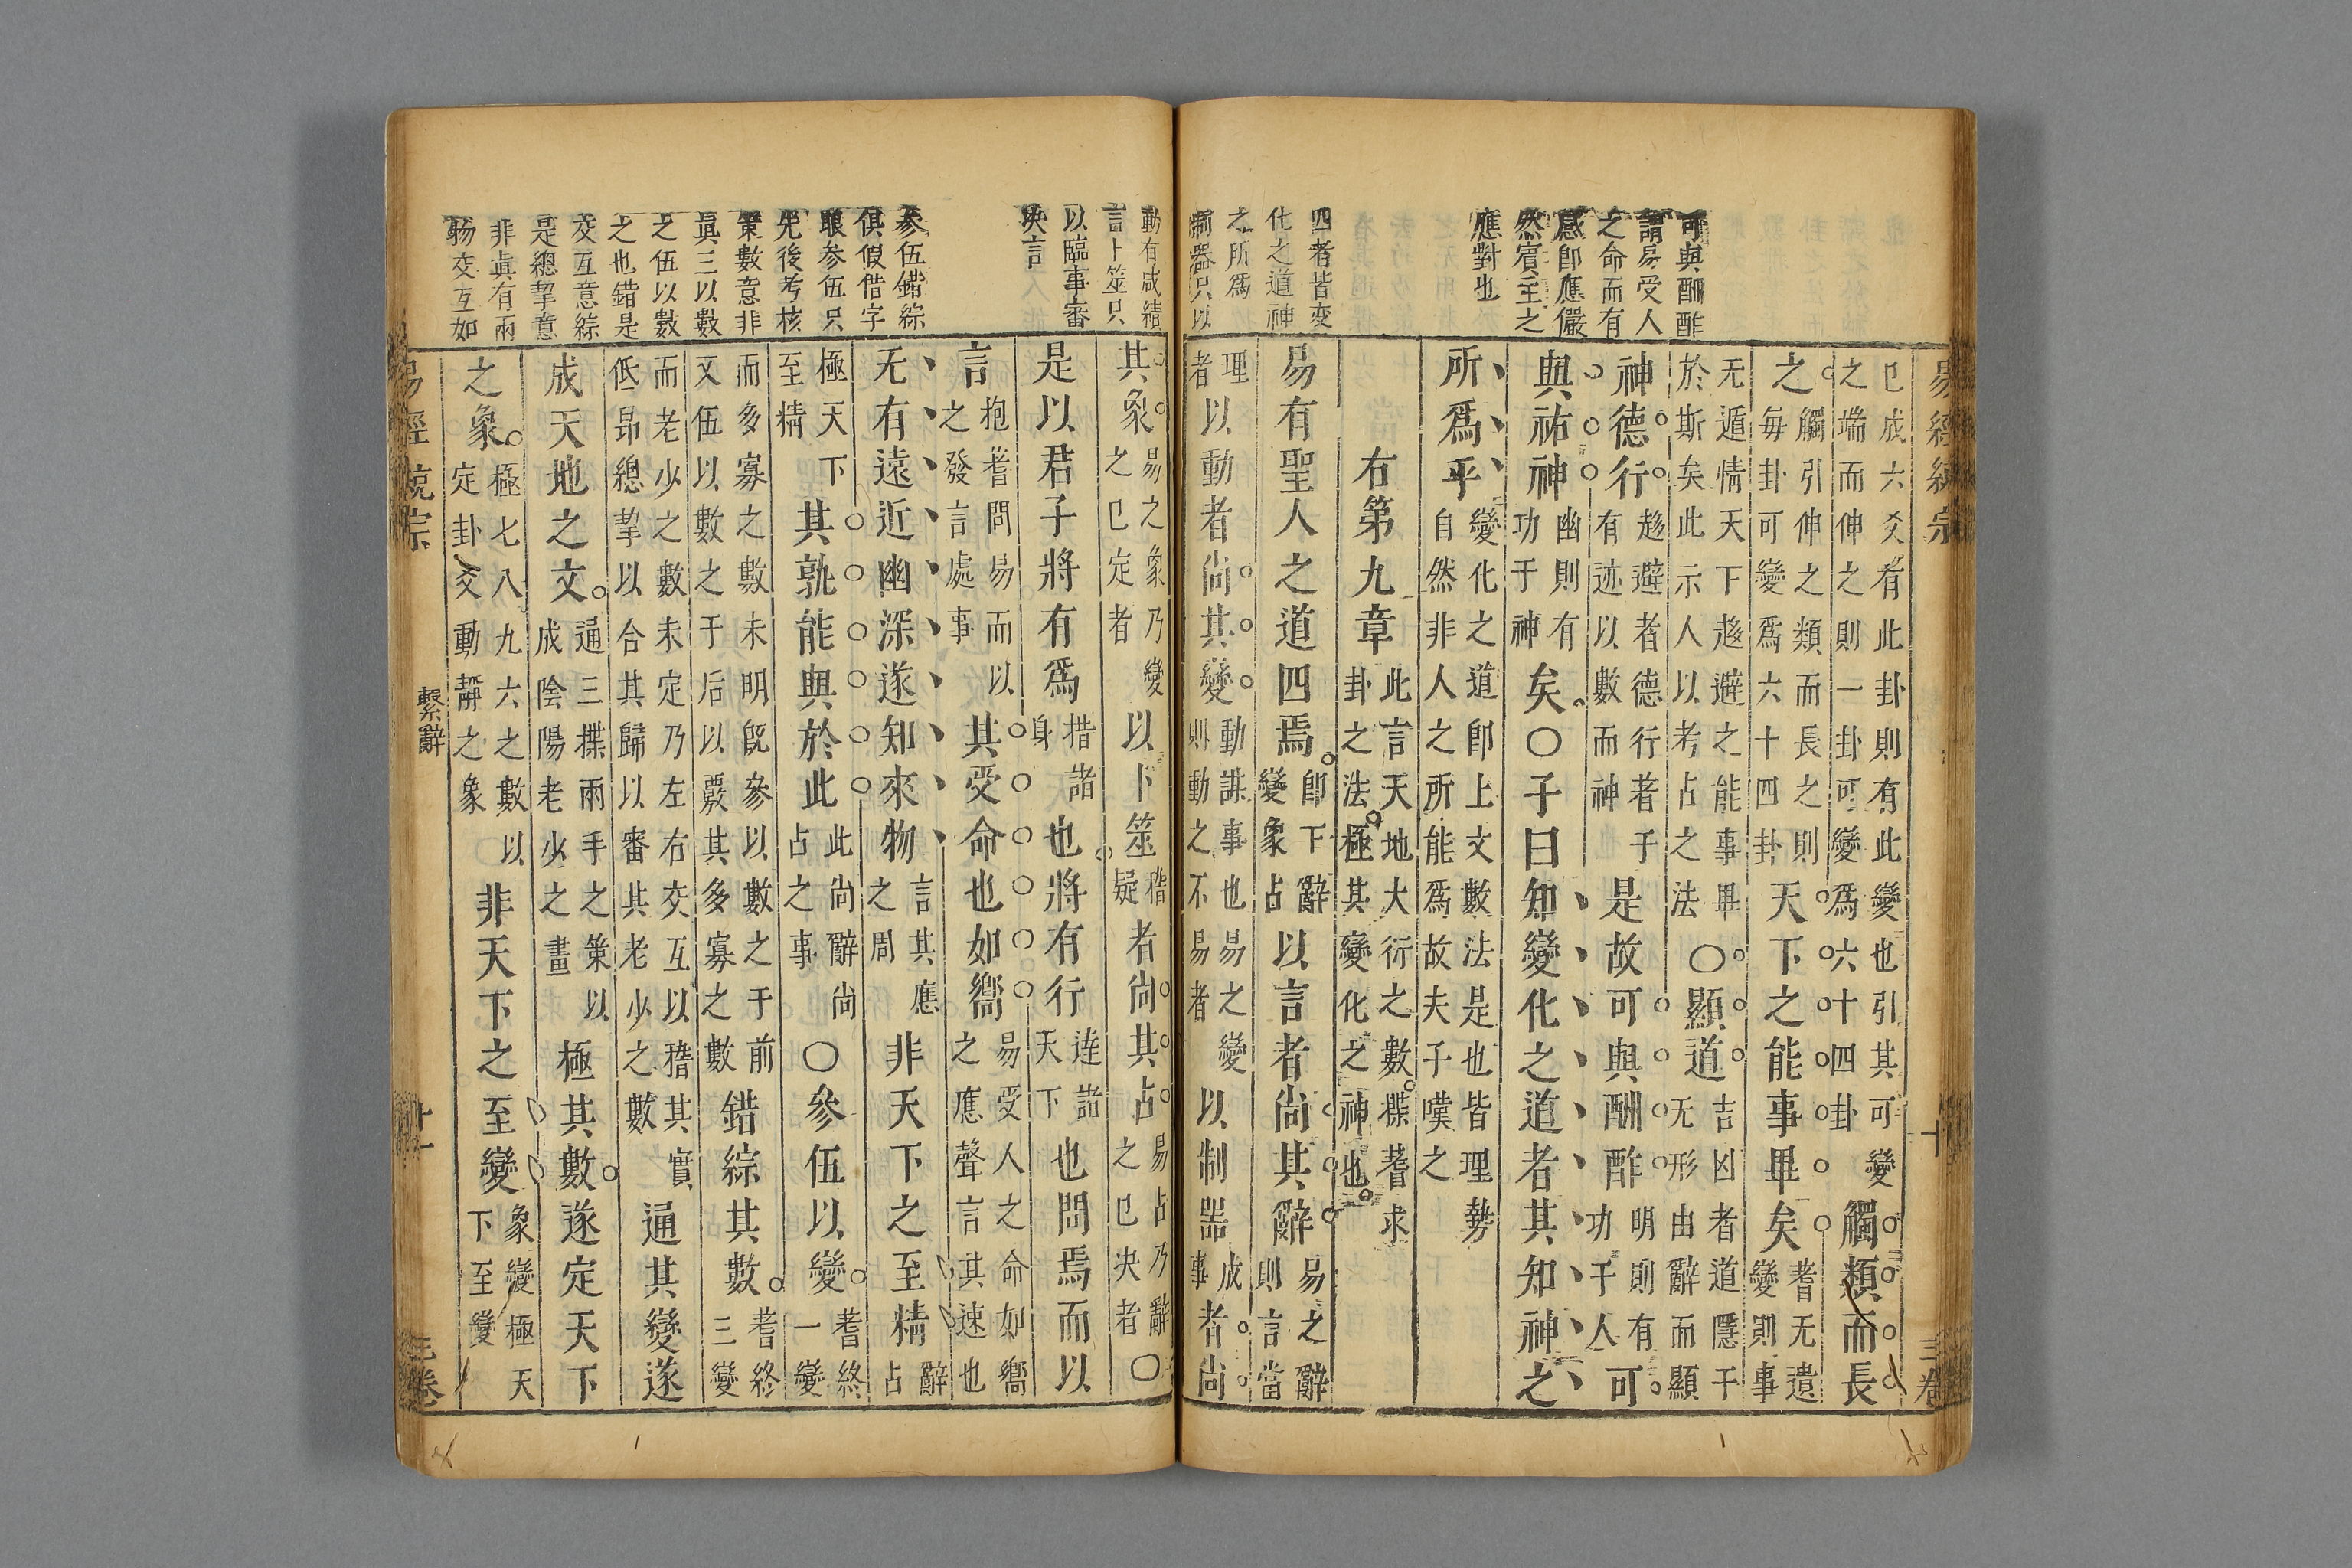 可與酬酢
謂易受人
之命而有
感卽應儼
然賓主之
應對也
四者皆変
化之道神
之所爲
制器只以
易經 宗
十
三卷
已成六爻有此卦則有此變也引其可變
之端而伸之則一卦可變爲六十四卦
觸類而長
之
觸引伸之類而長之則
每卦可變爲六十四卦
天下之能事畢矣
蓍无遺
變則事
无遁情天下趨避之能事畢
於斯矣此示人以考占之法
〇顯道
吉凶者道隱于
无形由辭而顯
神德行
趨避者德行者于
有迹以數而神
是故可與酬酢
明則有
功于人
可
與祐神
幽則有
功于神
矣〇子曰知變化之道者其知神之
所爲乎
變化之道卽上文數法是也皆理勢
自然非人之所能爲故夫子嘆之
右第九章
此言天地大衍之數揲蓍求
卦之法極其變化之神也
易有聖人之道四焉
卽下辭
變象占
以言者尚其辭
易之辭
則言當
理
者
以動者尚其變
動謀事也易之變
則動之不易者
以制器
成
事
者尚
動有成績
言卜筮只
以臨事審
決言
參伍錯綜
俱假借字
眼參伍只
先後考核
策數意非
眞三以數
之伍以數
之也錯是
交互意綜
是總挈意
非眞有兩
物交互如
其象
易之象乃變
之已定者
以卜筮
稽
疑
者尚其占
易占乃辭
之已決者
〇
是以君子將有爲
措諸
身
也將有行
達諸
天下
也問焉而以
言
抱蓍問易而以
之發言處事
其受命也如嚮
易受人之命如嚮
之應聲言其速也
无有遠近幽深遂知來物
言其應
之周
非天下之至精
辭
占
極天下
至精
其孰能與於此
此尚辭尚
占之事
〇參伍以變
蓍終
一變
而多寡之數未明旣參以數之于前
又伍以數之于后以覈其多寡之數
錯綜其數
蓍終
三變
而老少之數未定乃左右交互以稽其實
低昂總挈以合其歸以審其老少之數
通其變遂
成天地之文
通三揲兩手之策以
成陰陽老少之畫
極其數遂定天下
之象
極七八九六之數以
定卦爻動靜之象
非天下之至變
象變極天
下至變
易經統宗
繫辭
十一
三卷